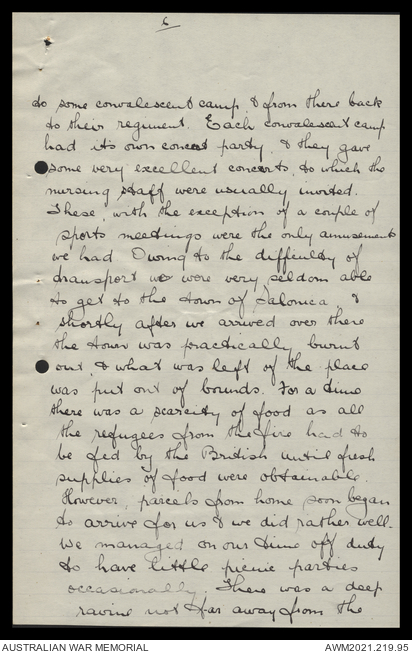 6
to some convalescent camp, & from there back
to their regiment. Each convalescent camp
had its own concert party, & they gave
some very excellent concerts, to which the
nursing staff were usually invited.
These, with the exception of a couple of
sports meetings were the only amusements
we had. Owing to the difficulty of
transport we were very seldom able
to get to the town of Salonica, &
shortly after we arrived over there
the town was practically burnt
out, & what was left of the place
was put out of bounds. For a time
there was a scarcity of food as all
the refugees from the fire had to
be fed by the British until fresh
supplies of food were obtainable.
However, parcels from home soon began
to arrive for us & we did rather well.
We managed on our time off duty
to have little picnic parties
occasionally. There was a deep
ravine not far away from the
AUSTRALIAN WAR MEMORIAL
AWM2021.219.95